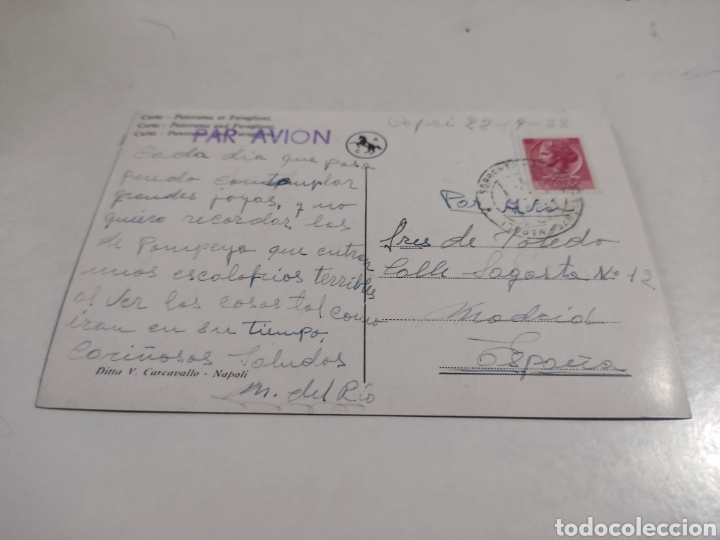 Capri - Panorama et Faraglioni.
Capri - Panorama and Faraglioni.
Capri - Panorama
PAR AVION
Capri 22-9-53
Cada dia que pasa
puedo contemplar
grandes joyas, y no
quiero recordar las
de Pompeya que entran
unos escalofrios terribles
al ver las cosas tal como
iran en su tiempo,
Cariñosos Saludos
M. del Río
Ditta V. Carcavallo - Napoli
Por Avion
Sres de Toledo
Calle Sagasta Nº 12
Madrid
España
todocoleccion